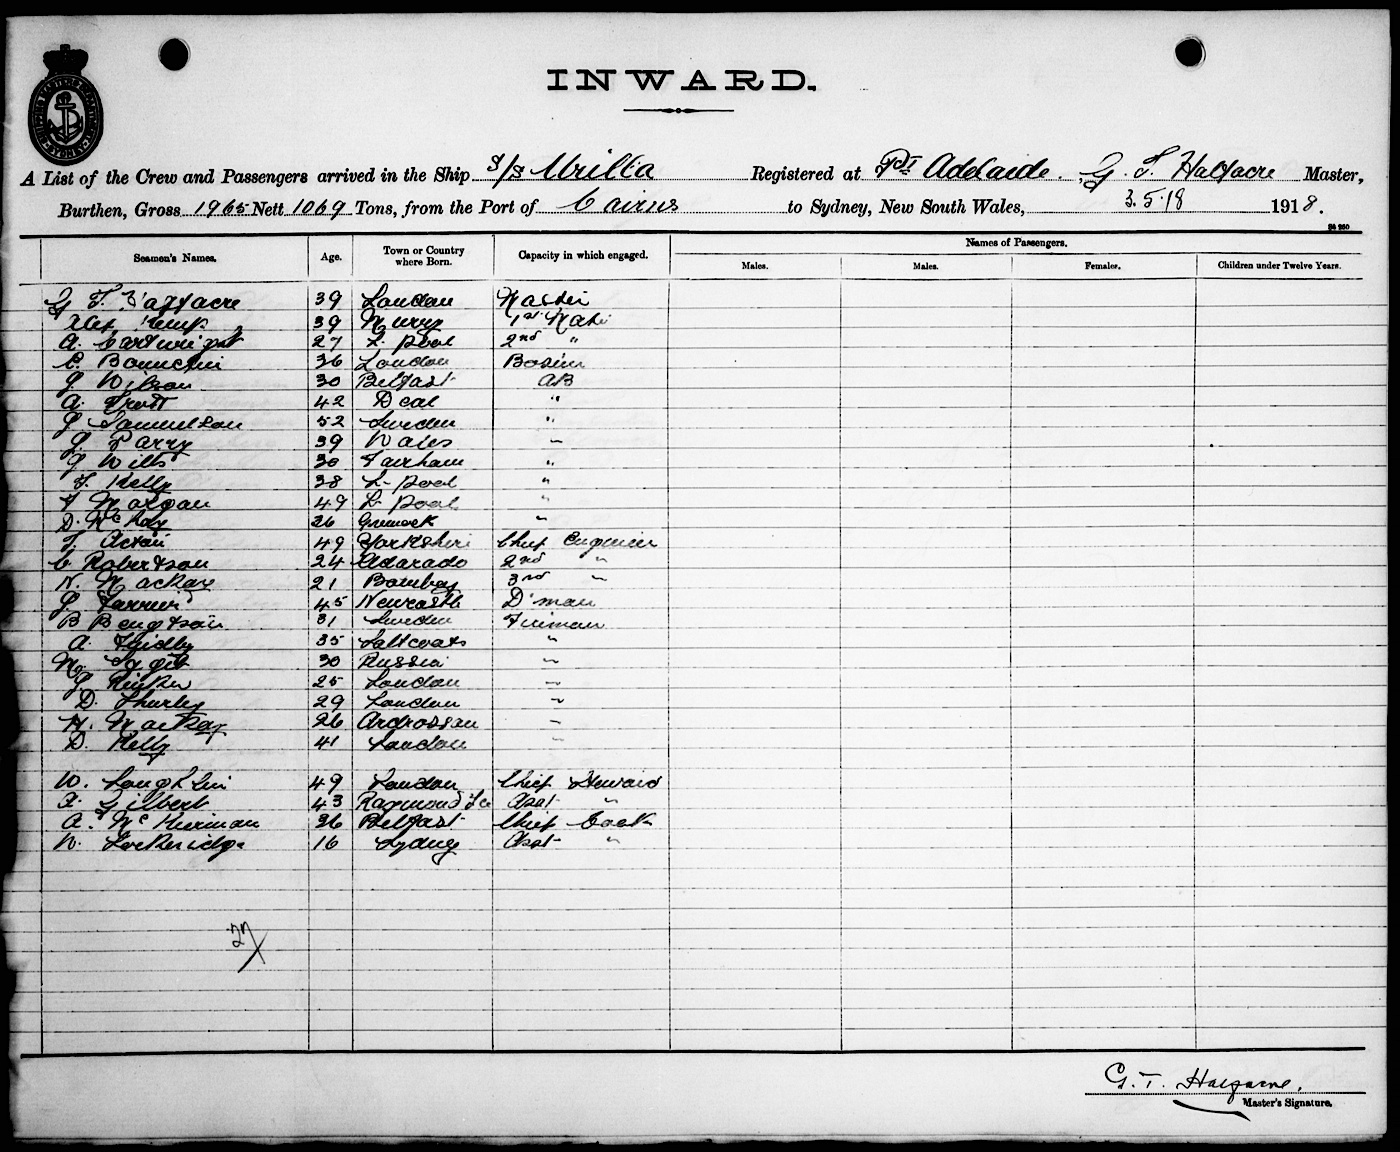 INWARD.
A List of the Crew and Passengers arrived in the Ship S/S Urilla Registered at Pt Adelaide. G. T. Halfacre Master,
Burthen, Gross 1965 Nett 1069 Tons, from the Port of Cairns to Sydney, New South Wales, 3.5.18 1918.
Seamen's Names. Age. Town or Country where Born. Capacity in which engaged. Names of Passengers.
Males. Males. Females. Children under Twelve Years.
G T Halfacre 39 London Master
Alex Kemp 39 Newry 1st Mate
A. Cartwright 27 L. pool 2nd "
C. 36 London Bosun
J. Wilson 30 Belfast AB
A. Trott 42 Deal "
J Samuelson 52 Sweden "
J. Parry 39 Wales "
J Wills 30 Fairham "
T. Kelly 38 L- pool "
T Morgan 49 L- pool "
D. McKay 26 Greenock "
T. Acton 49 Yorkshire Chief Engineer
C Robertson 24 2nd "
N. Mackay 21 Bombay 3rd "
J. 45 Newcastle D'man
B Bengtson 31 Sweden Fireman
A. 35 Saltcoats "
30 Russia "
J. 25 London "
D. 29 London "
H. Mackay 26 Ardrossan "
D. Kelly 41 London "
W. Loughlin 49 London Chief Steward
F. Gilbert 43 Raymond Tce Asst "
A. McKiernan 36 Belfast Chief Cook
W. Lockeridge 16 Sydney Asst "
27
G. T. Halfacre.
Master's Signature.